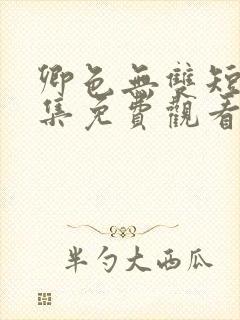 卿色無雙短
集免費觀看
半勺大西瓜